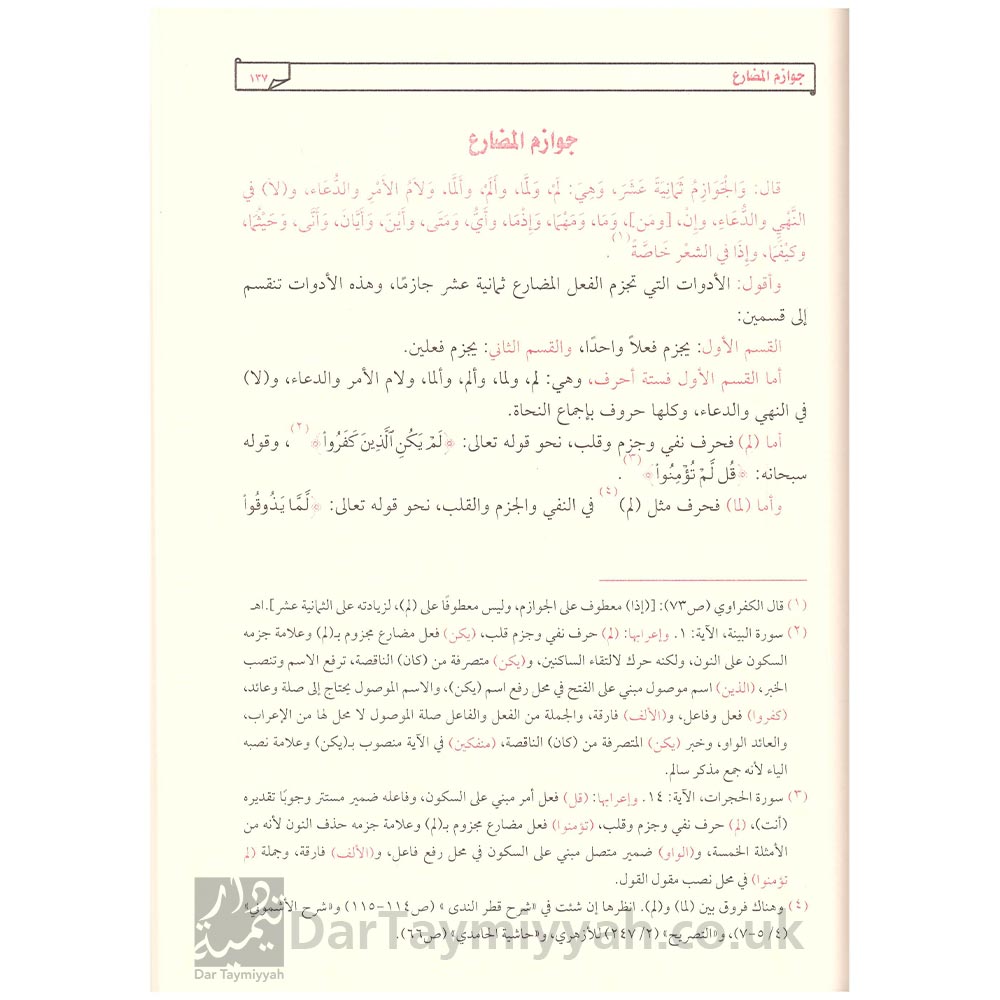 جوازم المضارع
١٣٧
جوازم المضارع
قال: وَالْجَوَازِمُ ثَمَانِيَةَ عَشَرَ، وَهِيَ: لَمْ، وَلَمَّا، وَأَلَمْ، وَأَلَمَّا، وَلَامُ الأَمْرِ والدُّعَاءِ، و(لا) في
النَّهْيِ والدُّعَاءِ، وإِنْ، [ومَن]، وَمَا، وَمَهْمَا، وَإِذْمَا، وَأَيُّ، وَمَتَى، وأَيْنَ، وَأَيَّانَ، وَأَنَّى، وَحَيْثُمَا،
وكيْفَمَا، وإِذَا في الشعْر خَاصَّةً (١).
وأقول: الأدوات التي تجزم الفعل المضارع ثمانية عشر جازمًا، وهذه الأدوات تنقسم
إلى قسمين:
القسم الأول: يجزم فعلاً واحدًا، والقسم الثاني: يجزم فعلين.
أما القسم الأول فستة أحرف، وهي: لم، ولما، وألم، وألما، ولام الأمر والدعاء، و(لا)
في النهي والدعاء، وكلها حروف بإجماع النحاة.
أما (لم) فحرف نفي وجزم وقلب، نحو قوله تعالى: ﴿لَمْ يَكُنِ ٱلَّذِينَ كَفَرُوا۟﴾ (٢)، وقوله
سبحانه: ﴿قُل لَّمْ تُؤْمِنُوا۟﴾ (٣).
وأما (لما) فحرف مثل (لم) (٤) في النفي والجزم والقلب، نحو قوله تعالى: ﴿لَّمَّا يَذُوقُوا۟
(١) قال الكفراوي (ص٧٣): [(إذا) معطوف على الجوازم، وليس معطوفًا على (لم)، لزيادته على الثمانية عشر].اهـ
(٢) سورة البينة، الآية: ١. وإعرابها: (لم) حرف نفي وجزم قلب، (يكن) فعل مضارع مجزوم بـ(لم) وعلامة جزمه
السكون على النون، ولكنه حرك لالتقاء الساكنين، و(يكن) متصرفة من (كان) الناقصة، ترفع الاسم وتنصب
الخبر، (الذين) اسم موصول مبني على الفتح في محل رفع اسم (يكن)، والاسم الموصول يحتاج إلى صلة وعائد،
(كفروا) فعل وفاعل، و(الألف) فارقة، والجملة من الفعل والفاعل صلة الموصول لا محل لها من الإعراب،
والعائد الواو، وخبر (يكن) المتصرفة من (كان) الناقصة، (منفكين) في الآية منصوب بـ(يكن) وعلامة نصبه
الياء لأنه جمع مذكر سالم.
(٣) سورة الحجرات، الآية: ١٤. وإعرابها: (قل) فعل أمر مبني على السكون، وفاعله ضمير مستتر وجوبًا تقديره
(أنت)، (لم) حرف نفي وجزم وقلب، (تؤمنوا) فعل مضارع مجزوم بـ(لم) وعلامة جزمه حذف النون لأنه من
الأمثلة الخمسة، و(الواو) ضمير متصل مبني على السكون في محل رفع فاعل، و(الألف) فارقة، وجملة (لم
تؤمنوا) في محل نصب مقول القول.
(٤) وهناك فروق بين (لما) و(لم). انظرها إن شئت في «شرح قطر الندى» (ص١١٤-١١٥) و«شرح الأشموني»
(٤/ ٥-٧)، و«التصريح» (٢/ ٢٤٧) للأزهري، و«حاشية الحامدي» (ص٦٦).
دار تيمية
Dar Taymiyyah
DarTaymiyyah.co.uk